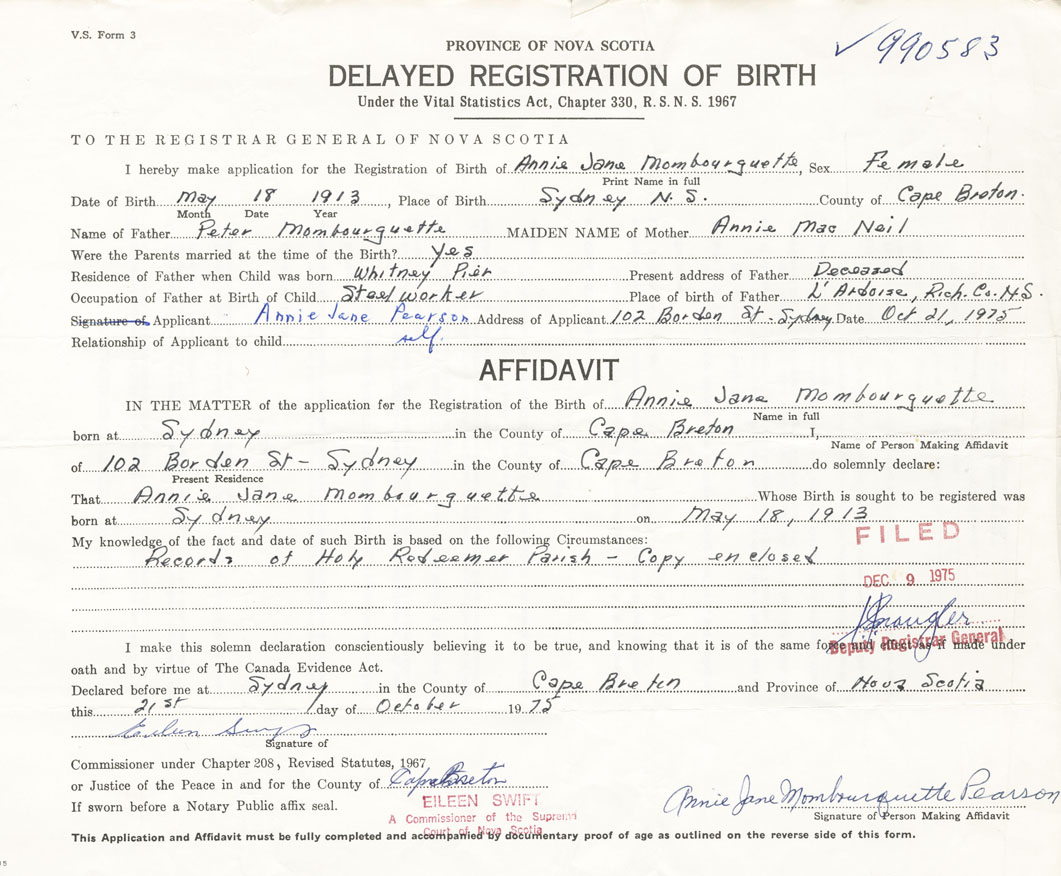 V.S. Form 3
990583
PROVINCE OF NOVA SCOTIA
DELAYED REGISTRATION OF BIRTH
Under the Vital Statistics Act, Chapter 330, R.S.N.S. 1967
TO THE REGISTRAR GENERAL OF NOVA SCOTIA
I hereby make application for the Registration of Birth of Annie Jane Mombourquette, Sex Female
Print Name in full
Date of Birth May 18 1913, Place of Birth Sydney N.S. County of Cape Breton.
Month Date Year
Name of Father Peter Mombourguette MAIDEN NAME of Mother Annie Mac Neil
Were the Parents married at the time of the Birth? Yes
Residence of Father when Child was born Whitney Pier Present address of Father Deceased
Occupation of Father at Birth of Child Steel worker Place of birth of Father L'Ardoise, Rich. Co. N.S.
Signature of Applicant Annie Jane Pearson Address of Applicant 102 Borden St - Sydney Date Oct 21, 1975
Relationship of Applicant to child self.
AFFIDAVIT
IN THE MATTER of the application for the Registration of the Birth of Annie Jane Mombourguette
Name in full
born at Sydney in the County of Cape Breton I,
Name of Person Making Affidavit
of 102 Borden St - Sydney in the County of Cape Breton do solemnly declare:
Present Residence
That Annie Jane Mombourguette Whose Birth is sought to be registered was
born at Sydney on May 18, 1913
My knowledge of the fact and date of such Birth is based on the following Circumstances:
FILED
Records of Holy Redeemer Parish - Copy enclosed
DEC 9 1975
Deputy Registrar General
I make this solemn declaration conscientiously believing it to be true, and knowing that it is of the same force and effect as if made under
oath and by virtue of The Canada Evidence Act.
Declared before me at Sydney in the County of Cape Breton and Province of Nova Scotia
this 21st day of October 1975
Eileen Swift
Signature of
Commissioner under Chapter 208, Revised Statutes, 1967
or Justice of the Peace in and for the County of Cape Breton
If sworn before a Notary Public affix seal.
EILEEN SWIFT
A Commissioner of the Supreme
Court of Nova Scotia
Annie Jane Mombourquette Pearson
Signature of Person Making Affidavit
This Application and Affidavit must be fully completed and accompanied by documentary proof of age as outlined on the reverse side of this form.